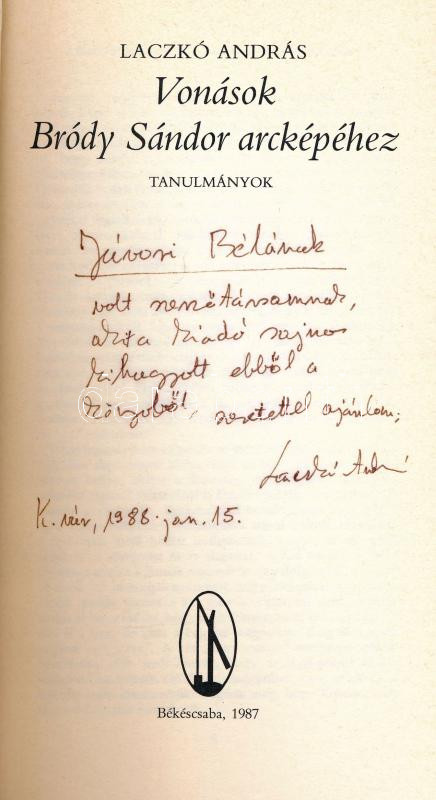 LACZKÓ ANDRÁS
Vonások
Bródy Sándor arcképéhez
TANULMÁNYOK
Jávori Bélának
volt szerzőtársamnak,
akit a kiadó sajnos
kihagyott ebből a
könyvből, szeretettel ajánlom;
Laczkó András
K.vár, 1988. jan. 15.
Békéscsaba, 1987